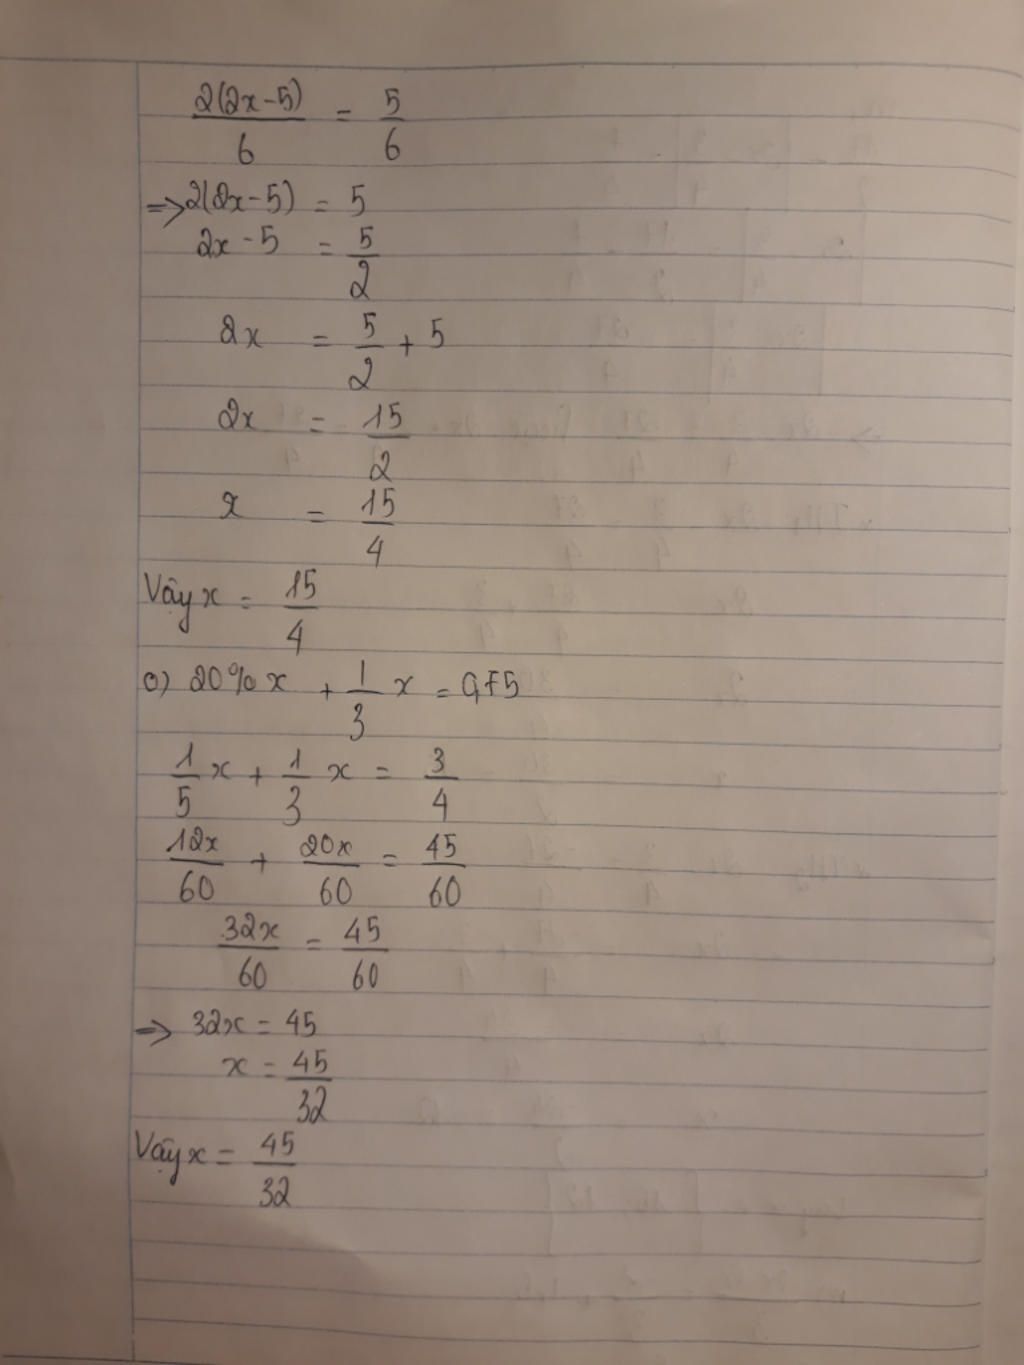 2(2x-5)/6 = 5/6
=> 2(2x-5) = 5
2x - 5 = 5/2
2x = 5/2 + 5
2x = 15/2
x = 15/4
Vậy x = 15/4
o) 20% x + 1/3 x = 0,75
1/5 x + 1/3 x = 3/4
12x/60 + 20x/60 = 45/60
32x/60 = 45/60
=> 32x = 45
x = 45/32
Vậy x = 45/32